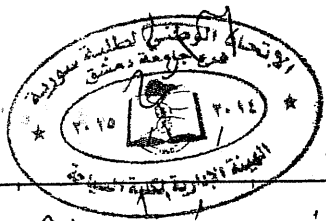 الإتحاد الوطني لطلبة سورية
فرع جامعة دمشق
٢٠١٥ ٢٠١٤
الهيئة الإدارية لكلية